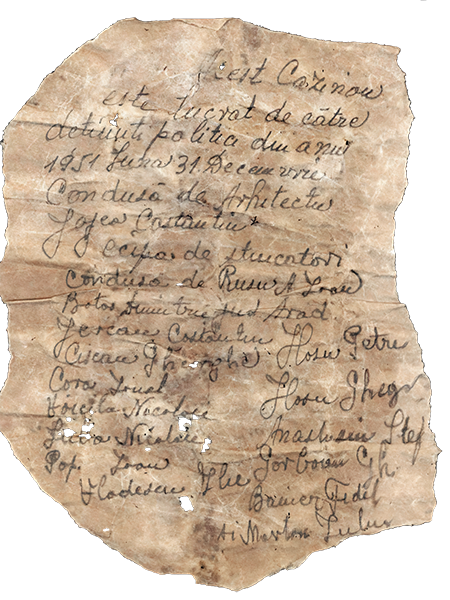 Acest Cazinou
este lucrat de către
detinuti politici din anu
1951 Luna 31 Decemvrie
Condusă de Arhitectu
Jojea Costantin
Ecipa de stucatori
condusă de Rusu A Ioan
Botos Dumitru Jud Arad
Costantin
Ciscan Gheorghe Hosu Petru
Cora Hosu
Voicila Nicolaie
Nicolaie Anastasiu Stef
Pop Ioan Gorbovan Gh
Vlodescu Ilie Fidel
Marton Iuliu